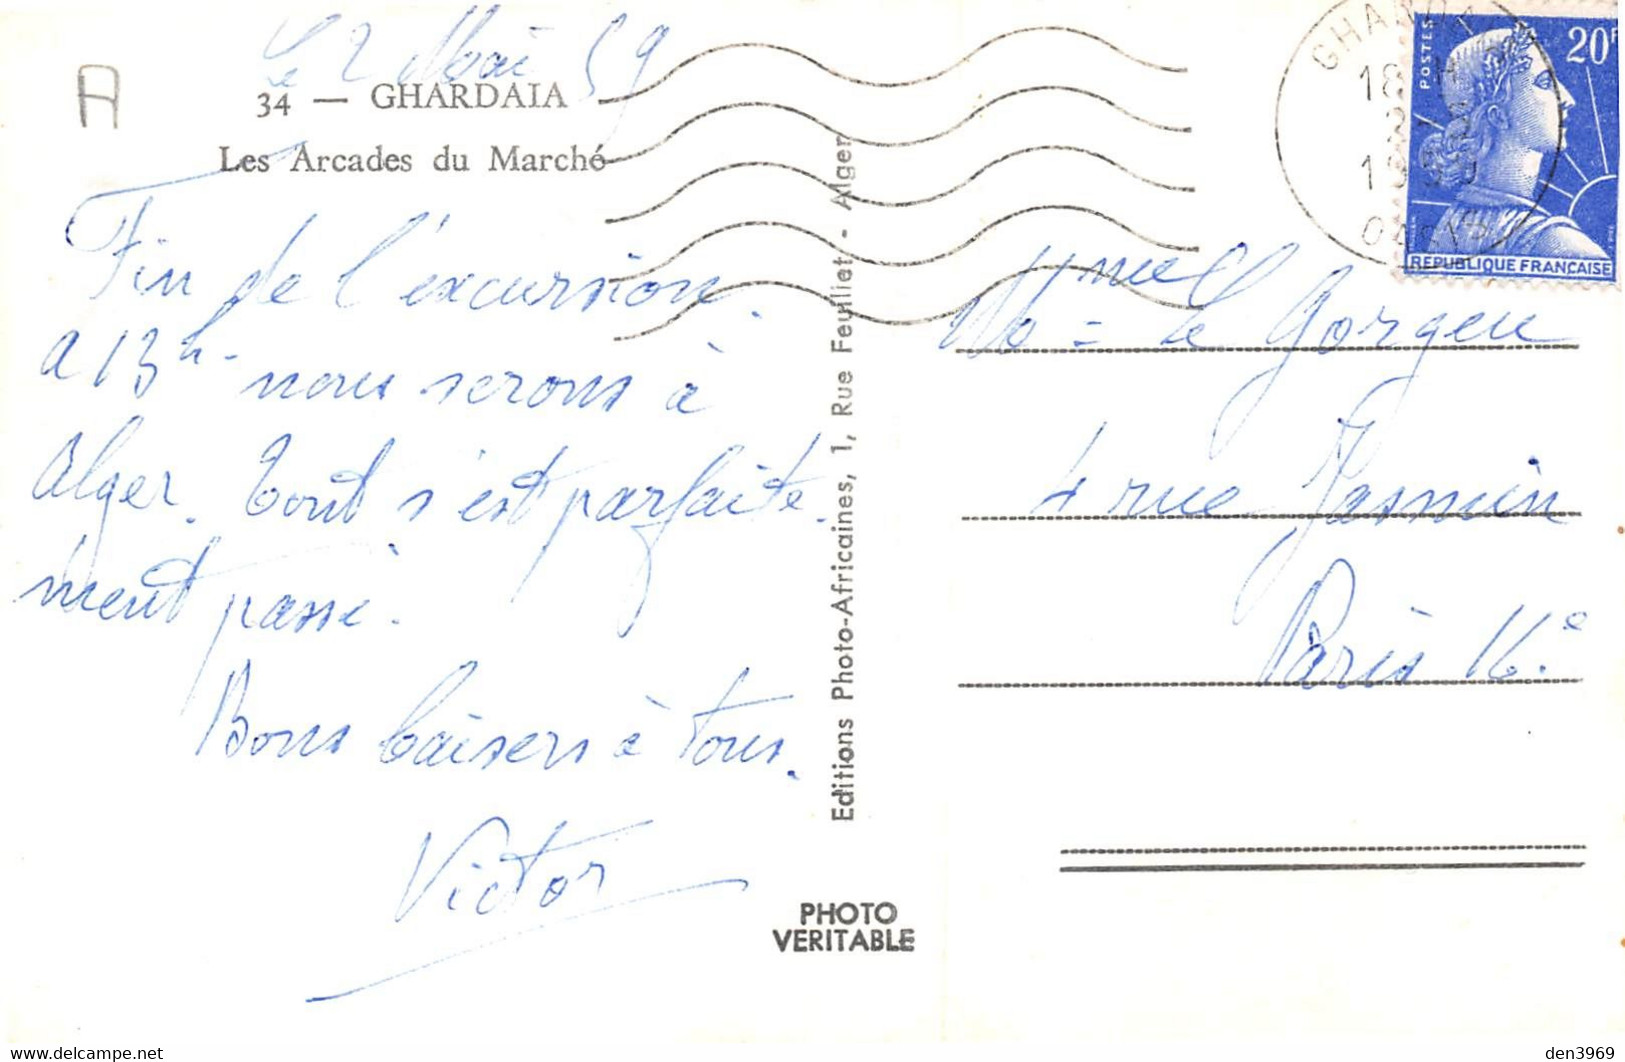 Le 2 Mai 59
A
34 — GHARDAIA
Les Arcades du Marché
Fin de l'excursion.
A 13h. nous serons à
Alger. Tout s'est parfaite-
ment passé.
Bons baisers à tous.
Victor
Editions Photo-Africaines, 1, Rue Feuillet - Alger
PHOTO
VERITABLE
GHARDAIA
18 H
2
1959
OASIS
POSTES
20F
REPUBLIQUE FRANÇAISE
le Gorgeu
4 rue Jasmin
Paris 16.e
delcampe.net
den3969